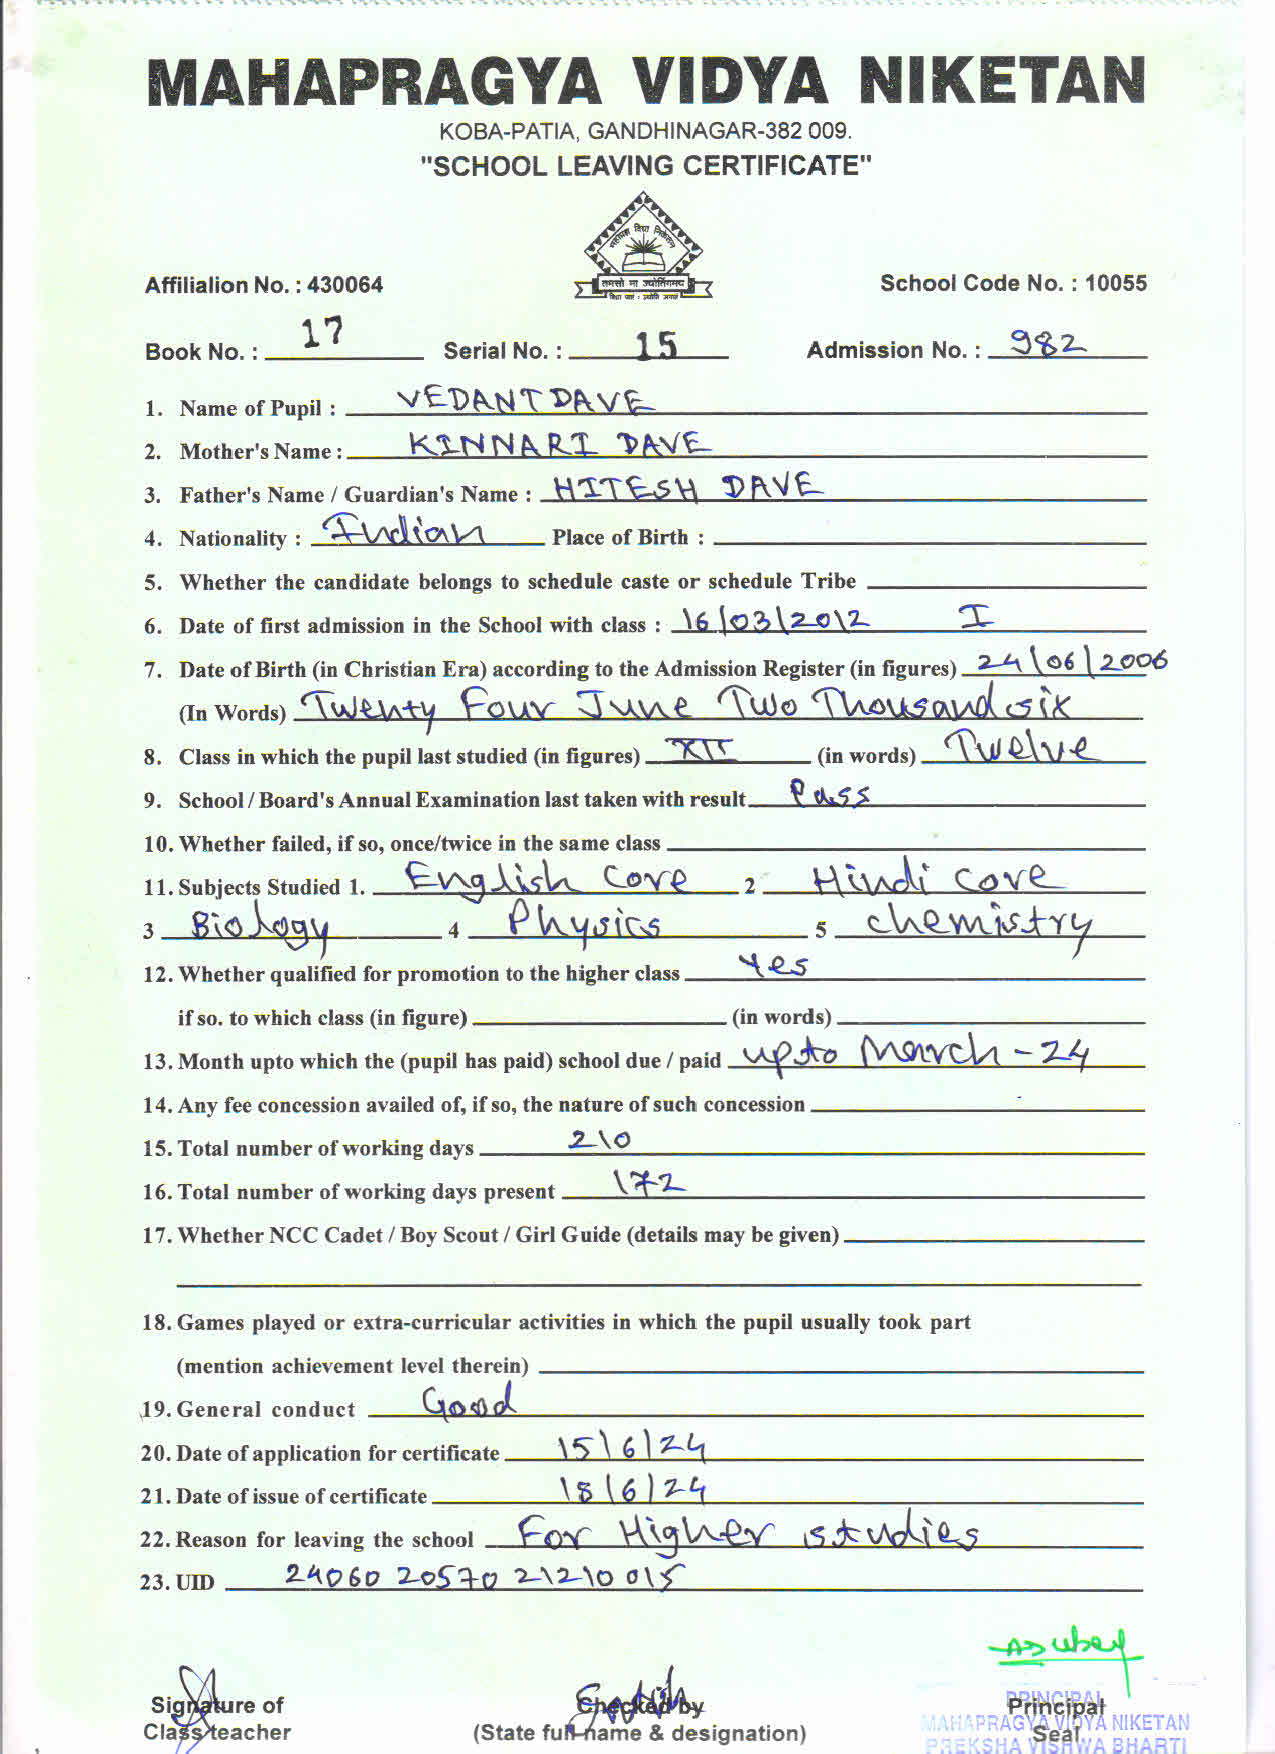 MAHAPRAGYA VIDYA NIKETAN
KOBA-PATIA, GANDHINAGAR-382 009.
"SCHOOL LEAVING CERTIFICATE"
महाप्रज्ञ विद्या निकेतन
तमसो मा ज्योतिर्गमय
Affilialion No. : 430064 School Code No. : 10055
Book No. : 17 Serial No. : 15 Admission No. : 982
1. Name of Pupil : VEDANT DAVE
2. Mother's Name : KINNARI DAVE
3. Father's Name / Guardian's Name : HITESH DAVE
4. Nationality : Indian Place of Birth :
5. Whether the candidate belongs to schedule caste or schedule Tribe
6. Date of first admission in the School with class : 16/03/2012 I
7. Date of Birth (in Christian Era) according to the Admission Register (in figures) 24/06/2006
(In Words) Twenty Four June Two Thousand six
8. Class in which the pupil last studied (in figures) XII (in words) Twelve
9. School / Board's Annual Examination last taken with result Pass
10. Whether failed, if so, once/twice in the same class
11. Subjects Studied 1. English Core 2 Hindi Core
3 Biology 4 Physics 5 Chemistry
12. Whether qualified for promotion to the higher class Yes
if so. to which class (in figure) (in words)
13. Month upto which the (pupil has paid) school due / paid upto March-24
14. Any fee concession availed of, if so, the nature of such concession
15. Total number of working days 210
16. Total number of working days present 172
17. Whether NCC Cadet / Boy Scout / Girl Guide (details may be given)
18. Games played or extra-curricular activities in which the pupil usually took part
(mention achievement level therein)
19. General conduct Good
20. Date of application for certificate 15/6/24
21. Date of issue of certificate 18/6/24
22. Reason for leaving the school For Higher studies
23. UID 24060 20570 21210 015
Signature of Checked by Principal PRINCIPAL
Class teacher (State full name & designation) Seal MAHAPRAGYA VIDYA NIKETAN
PREKSHA VISHWA BHARTI